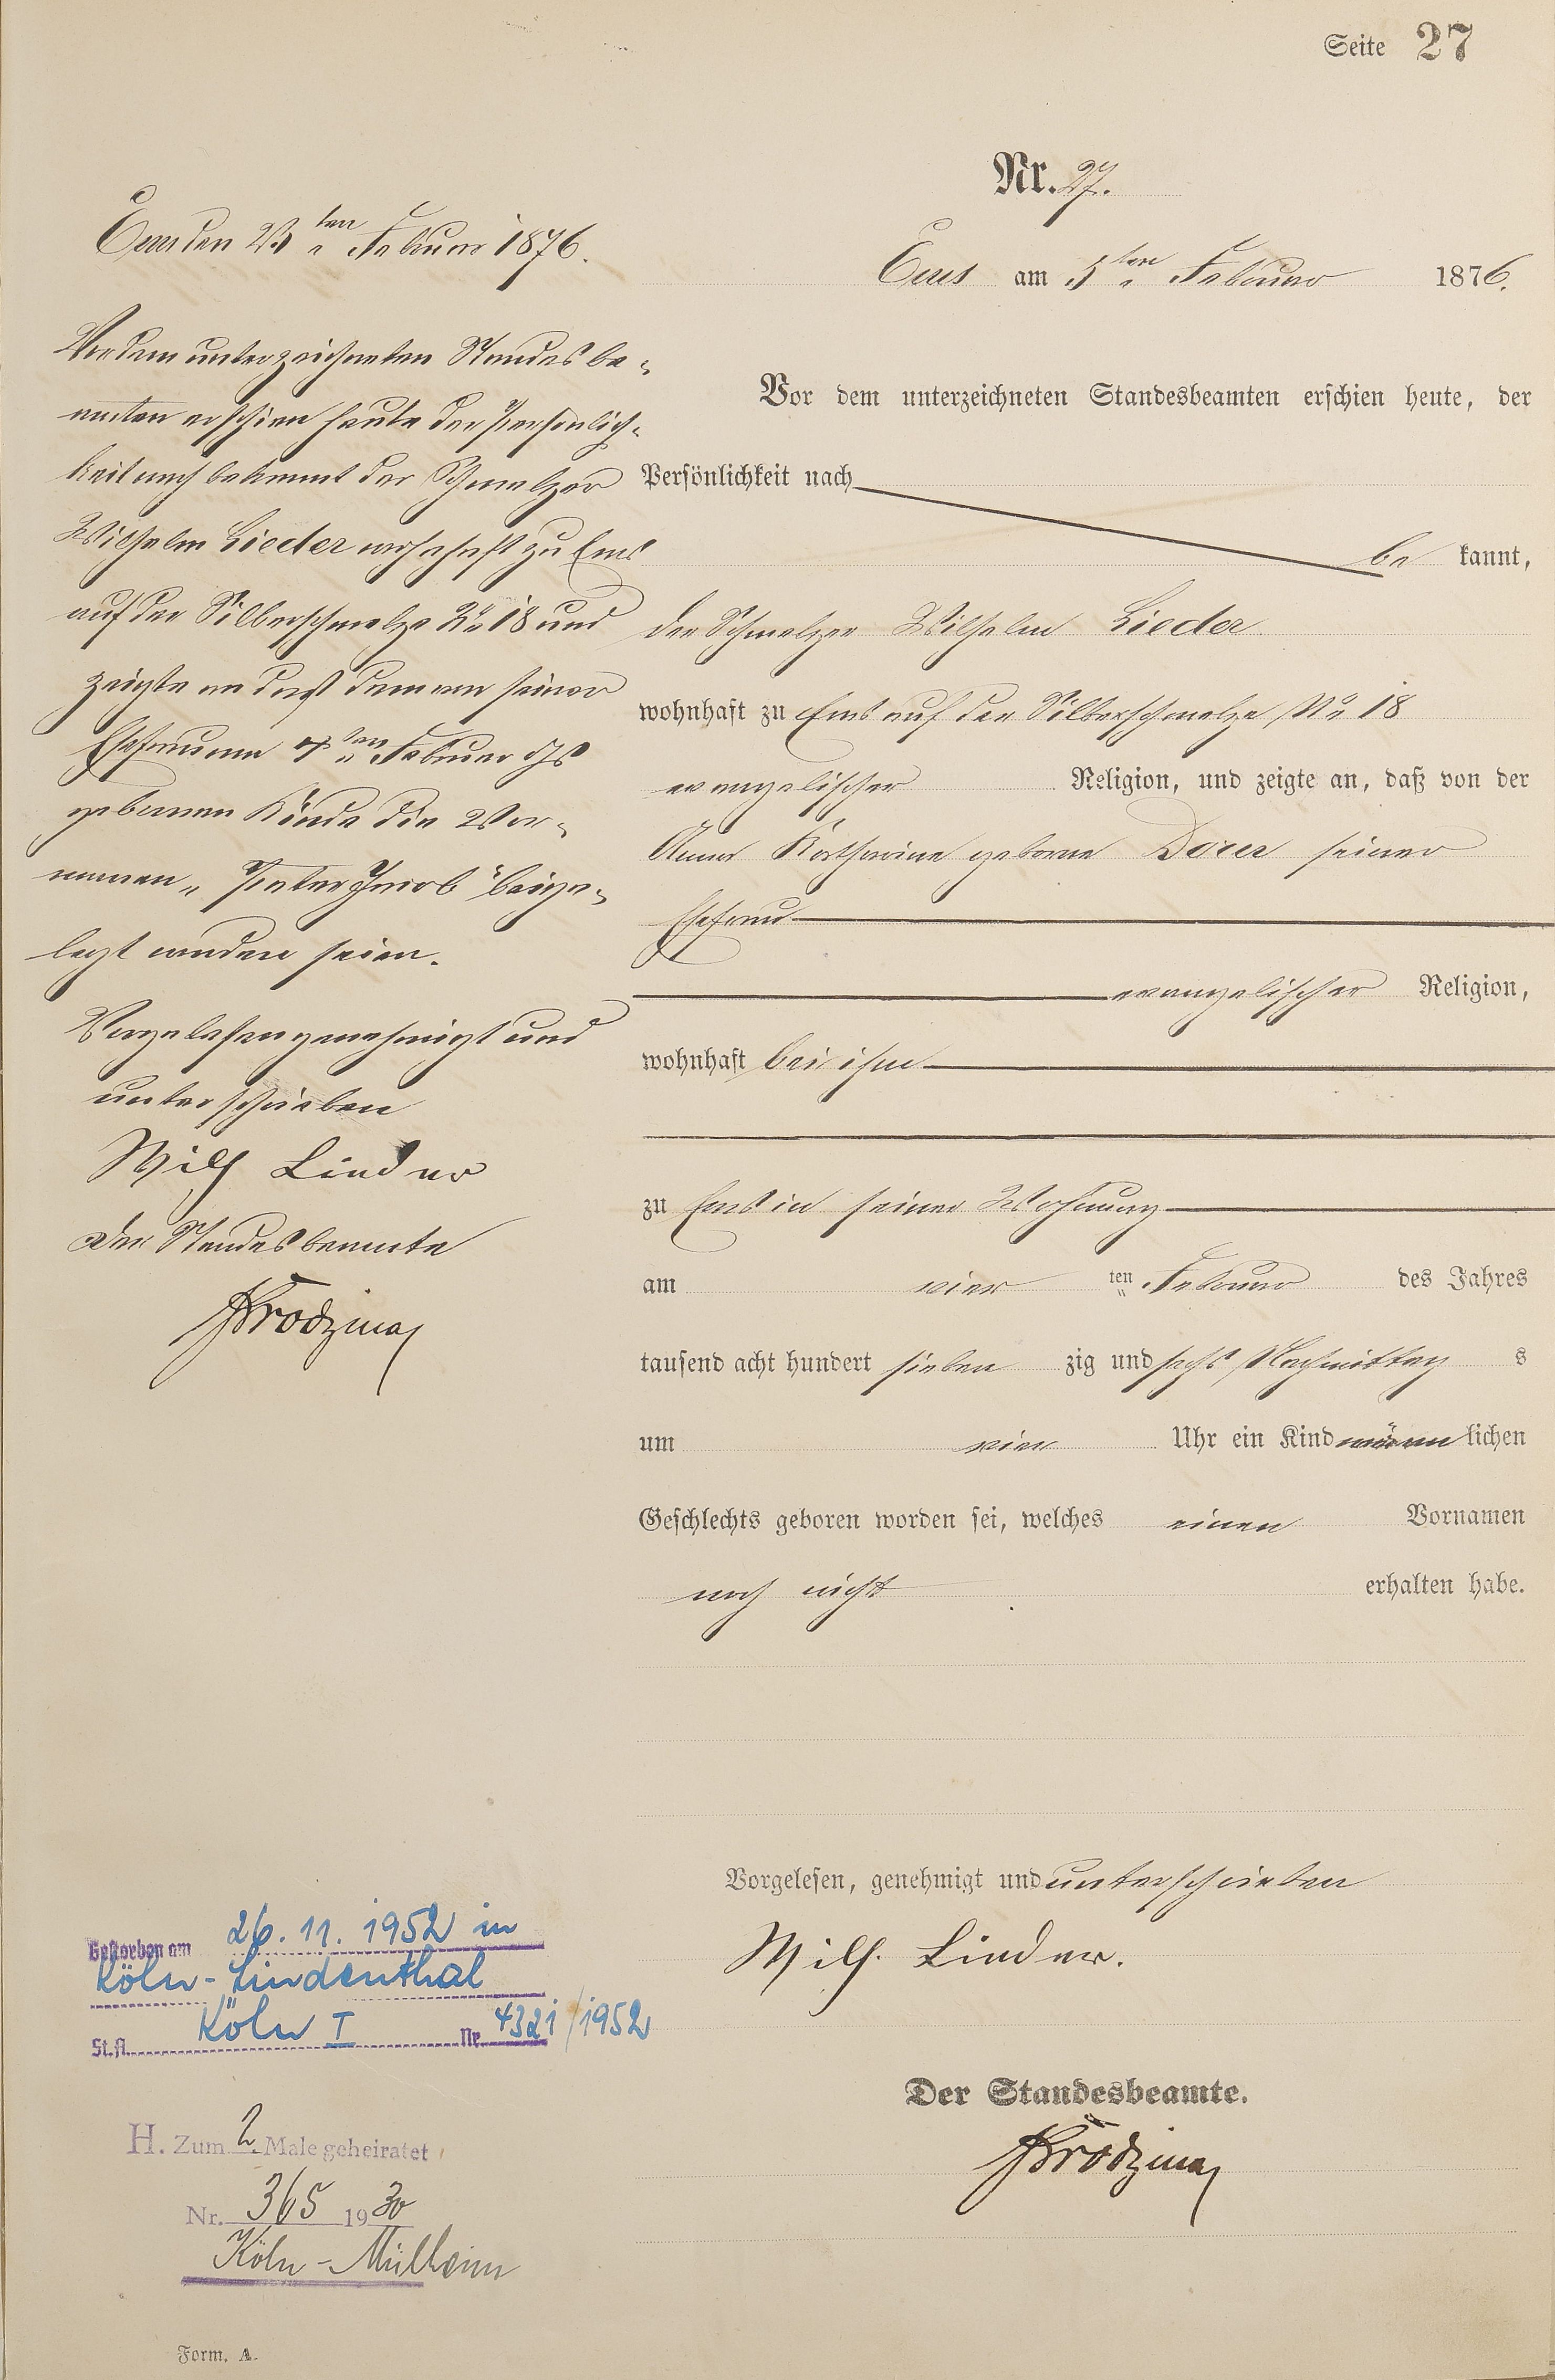 Seite 27
Nr. 27.
Ems am 5ten Februar 1876.
Vor dem unterzeichneten Standesbeamten erschien heute, der
Persönlichkeit nach
be kannt,
der Schmelzer Wilhelm Lieder
wohnhaft zu Ems auf der Silberschmelze No 18
evangelischer Religion, und zeigte an, daß von der
Anna Katharine geborne seiner
Ehefrau
evangelischer Religion,
wohnhaft bei ihm
zu Ems in seiner Wohnung
am vier ten Februar des Jahres
tausend acht hundert sieben zig und sechs Nachmittag s
um vier Uhr ein Kind männ lichen
Geschlechts geboren worden sei, welches einen Vornamen
noch nicht erhalten habe.
Vorgelesen, genehmigt und unterschrieben
Wilh. Lieder.
Der Standesbeamte.
Ems den 23ten Februar 1876.
Vor dem unterzeichneten Standesbe-
amten erschien heute der Persönlich-
keit nach bekannt der Schmelzer
Wilhelm Lieder wohnhaft zu Ems
auf der Silberschmelze No 18 und
zeigte an daß dem von seiner
Ehefrau am 4ten Februar
gebornen Kinde die Vor-
namen "Peter Jacob" beige-
legt worden seien.
Vorgelesen genehmigt und
unterschrieben
Wilh Lieder
Der Standesbeamte
Gestorben am 26. 11. 1952 in
Köln-Lindenthal
St.A. Köln I Nr. 4321/1952
H. Zum 2. Male geheiratet
Nr. 365 1930
Köln-Mülheim
Form. A.